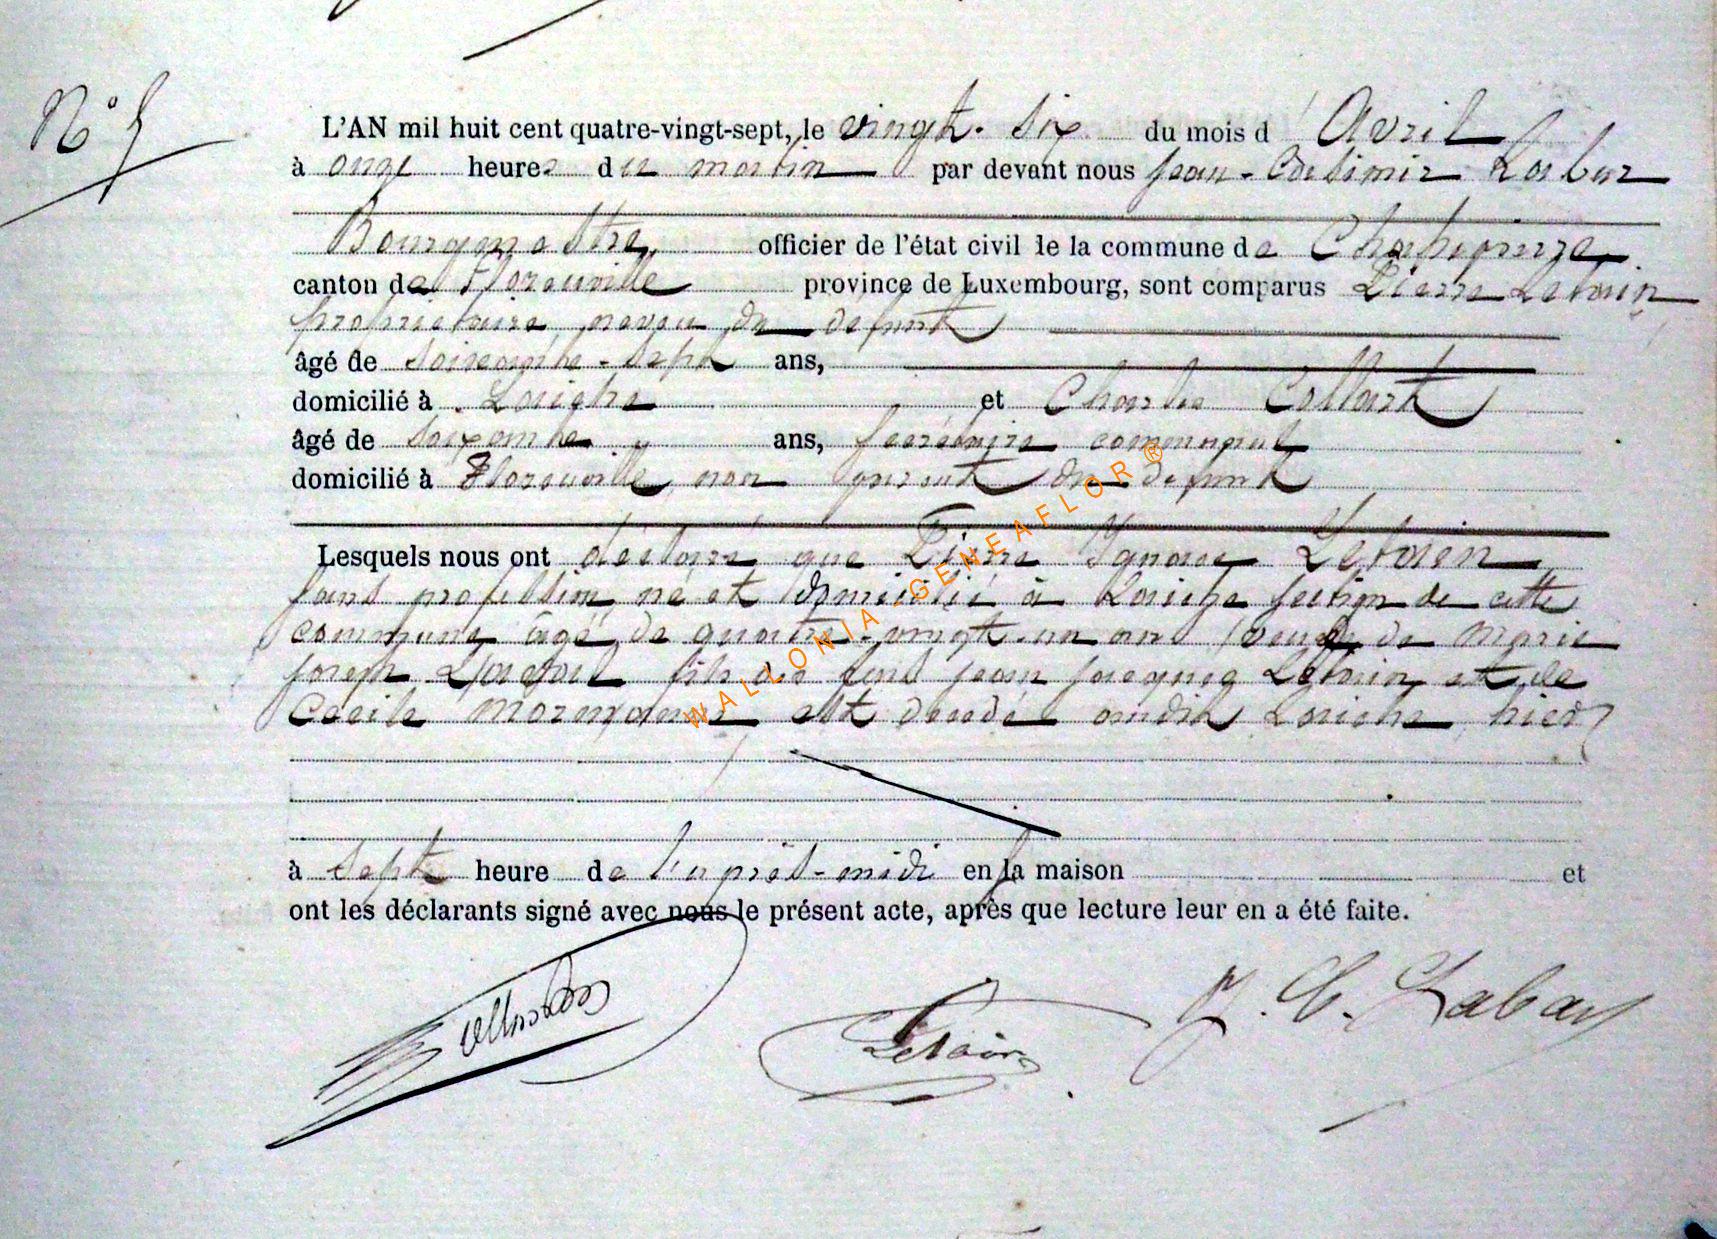 N° 5
L'AN mil huit cent quatre-vingt-sept, le vingt-six du mois d'Avril
à onze heures du matin par devant nous Jean-Casimir Labar
Bourgmestre, officier de l'état civil de la commune de Chassepierre
canton de Florenville province de Luxembourg, sont comparus Pierre Lefvrin
propriétaire neveu du défunt
âgé de soixante-sept ans,
domicilié à Laiche et Charles Collart
âgé de soixante ans, secrétaire communal
domicilié à Florenville, non parent du défunt
Lesquels nous ont déclaré que Pierre Ignace
sans profession, né et domicilié à Laiche section de cette
commune âgé de quatre-vingt-un ans veuf de Marie
Joseph fils de feus Jean Jacques et de
Cecile est décédé audit Laiche, hier
à sept heure de l'après-midi en la maison et
ont les déclarants signé avec nous le présent acte, après que lecture leur en a été faite.
J. C. Labar
WALLONIA GENEAFLOR ®